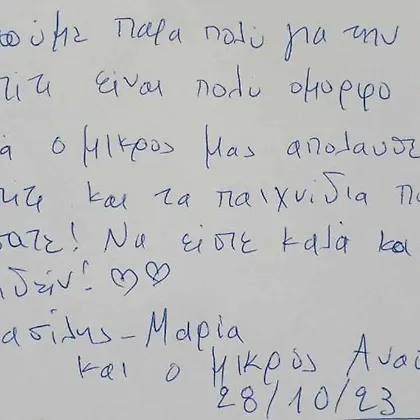 ούμε παρα πολύ για την
είναι πολυ ομορφο
ο μικρος μας απολαυσε
και τα παιχνιδια πο
σατε! Να είστε καλά κα
δείν! ♡♡
ασίλης - Μαρία
και ο μικρός Ανα
28/10/23